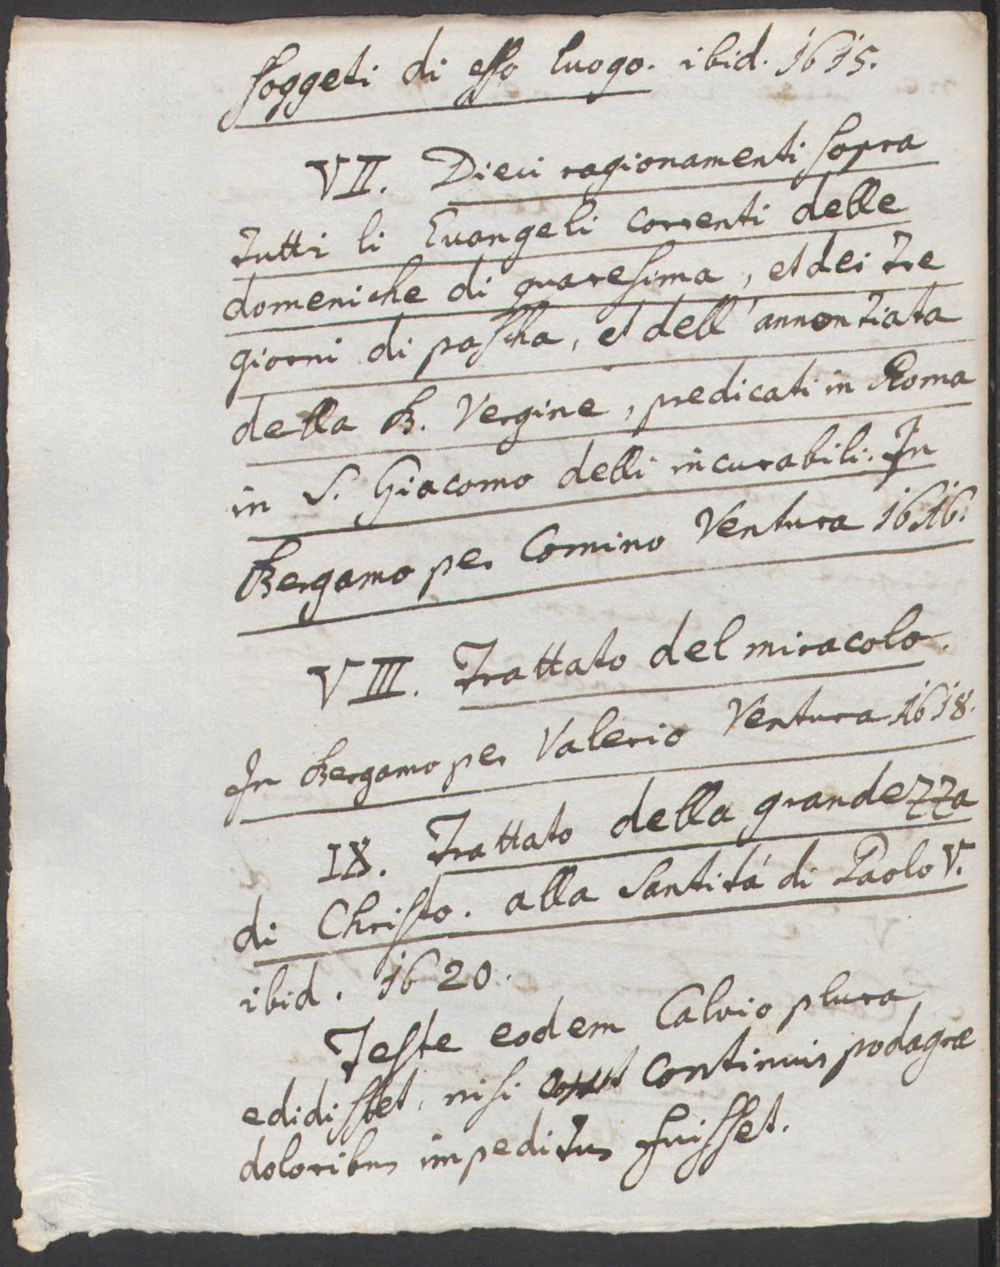 soggeti di esso luogo. ibid. 1615.
VII. Dieci ragionamenti sopra
tutti li Evangeli correnti delle
domeniche di quaresima, et dei tre
giorni di pascha, et dell' annontiata
della B. Vergine, predicati in Roma
in S. Giacomo delli incurabili. In
Bergamo per Comino Ventura 1616.
VIII. Trattato del miracolo.
In Bergamo per Valerio Ventura 1618.
IX. Trattato della grandezza
di Christo. alla Santitá di Paolo V.
ibid. 1620.
Teste eodem Calvio plura
edidisset, nisi continuis podagræ
doloribus impeditus fuisset.